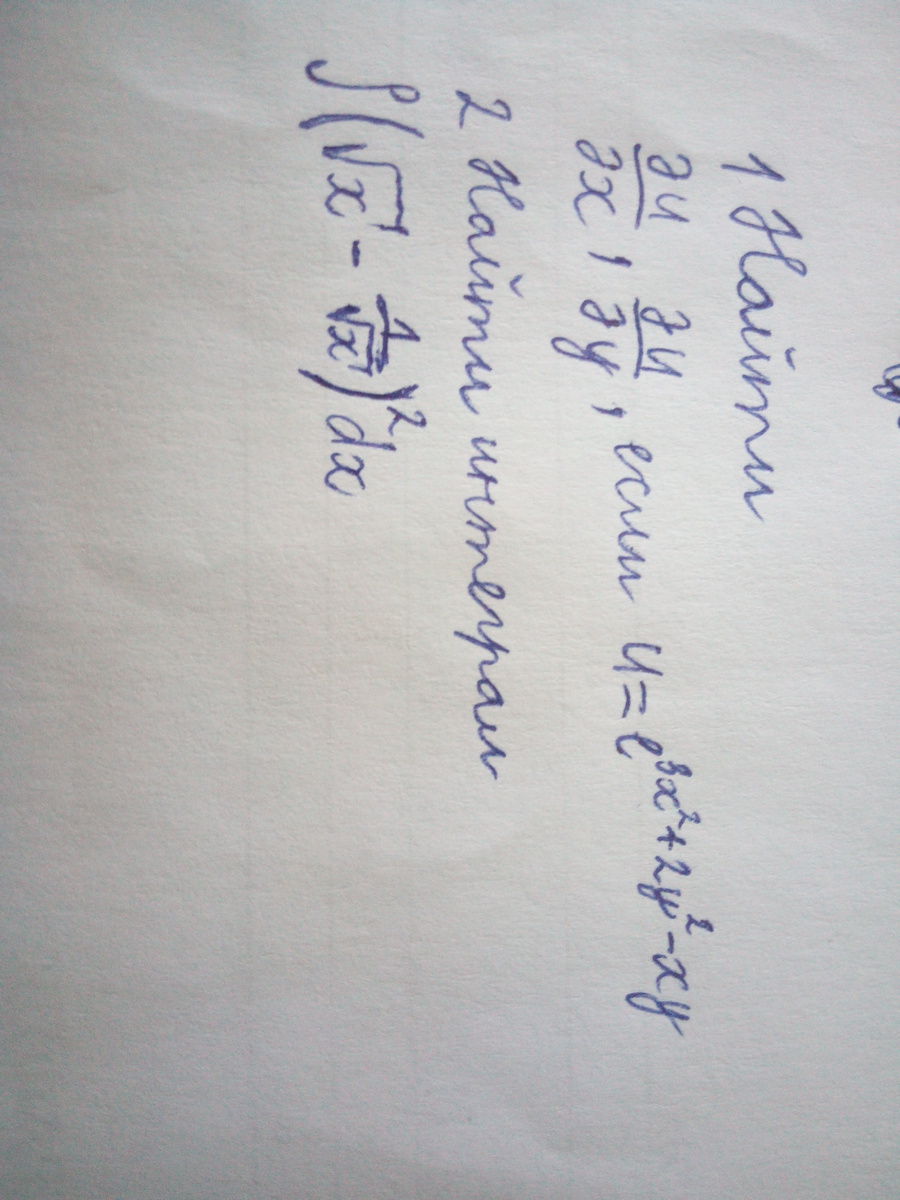 1 Найти
∂u/∂x, ∂u/∂y, если u=e^{3x^2+2y^2-xy}
2 Найти интеграл
∫(√x - 1/√x)^2 dx